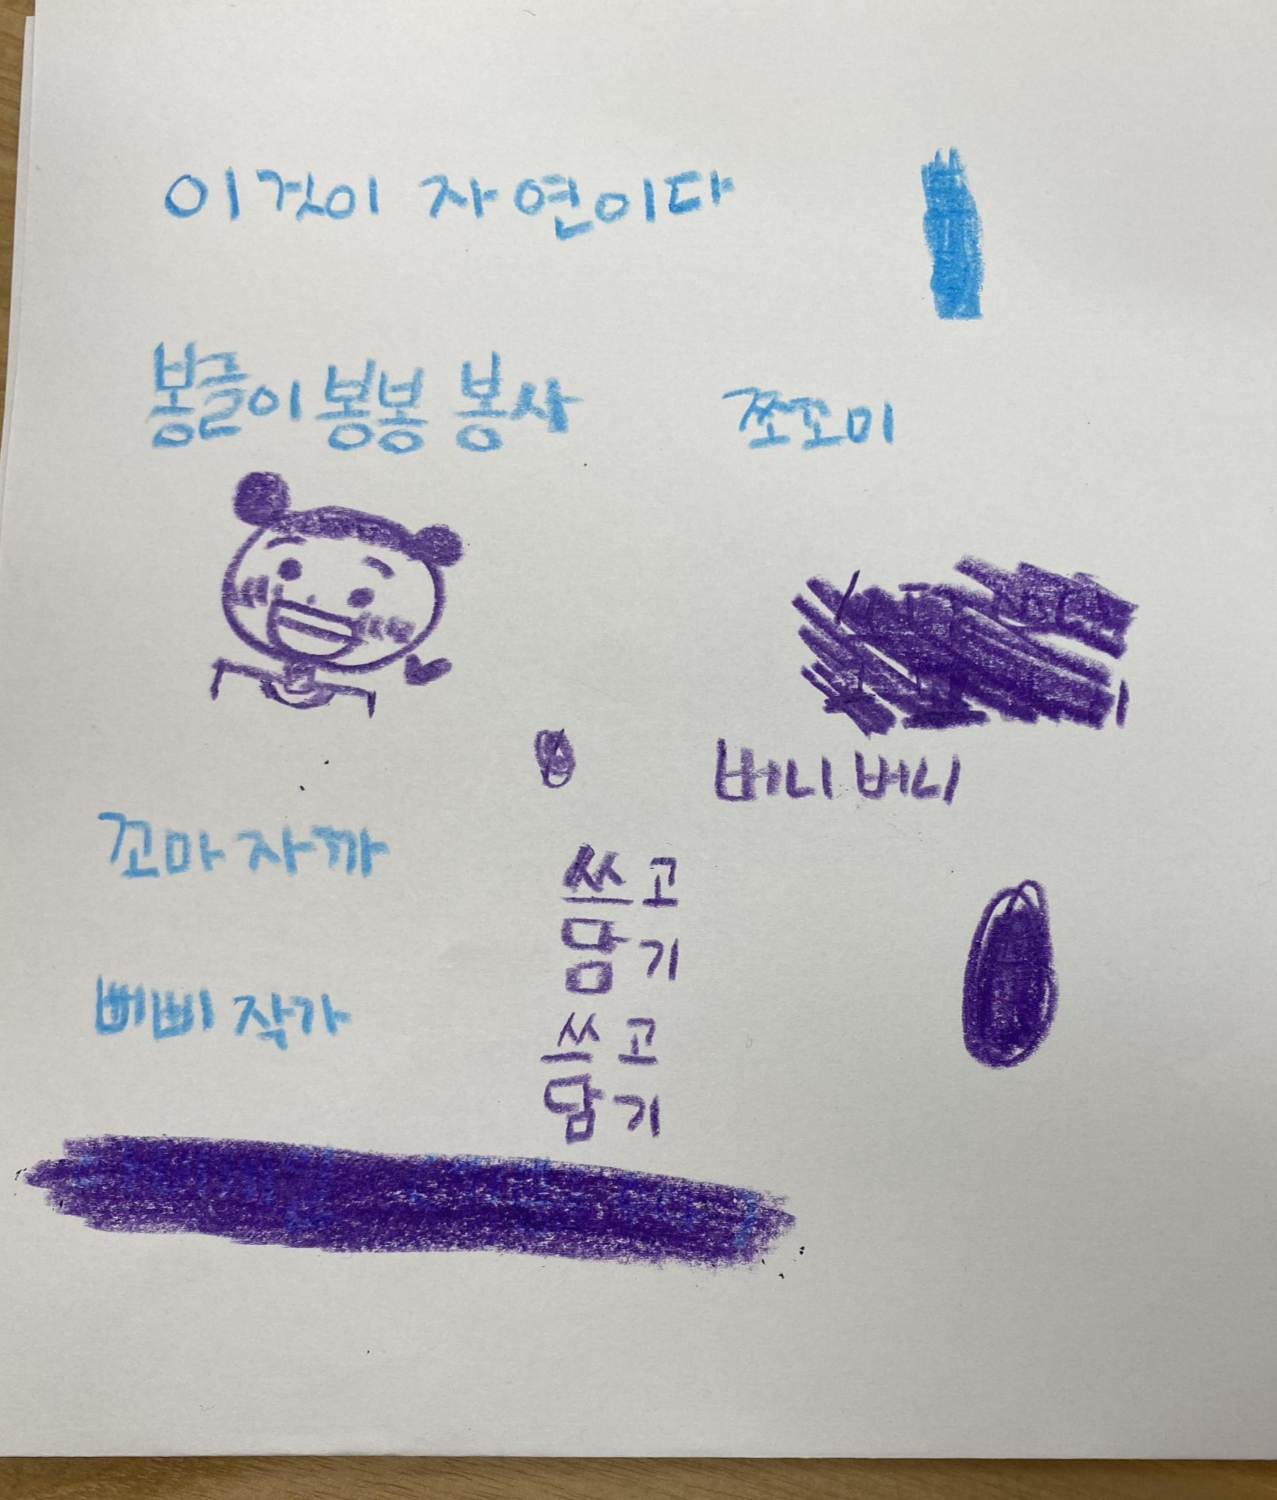 이것이 자연이다
봉들이 봉봉 봉사
쪼꼬미
버니버니
꼬마 자까
쓰고
담기
삐삐 작가
쓰고
담기